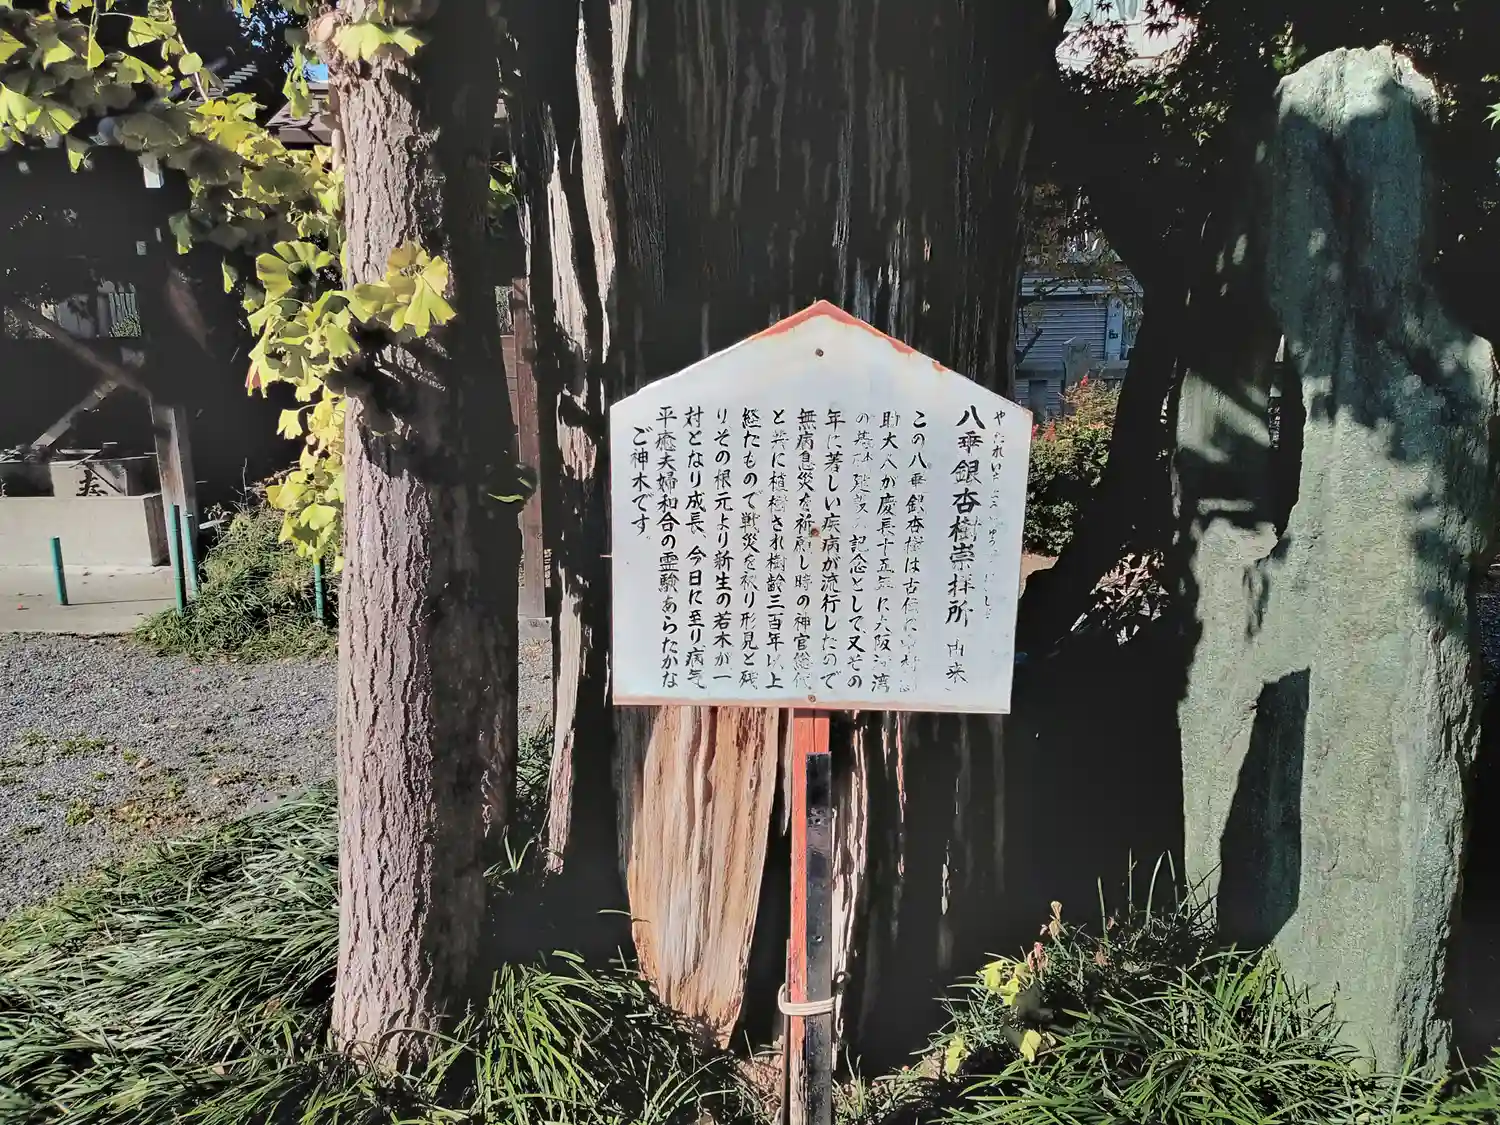 八垂銀杏樹崇拝所 由来
この八垂銀杏樹は古伝に
助大夫が慶長十五年に大阪 湾
の 記念として又その
年に著しい疾病が流行したので
無病息災を祈願し時の神官総代
と共に植樹され樹齢三百年以上
経たもので戦災を被り形見と残
りその根元より新生の若木が一
対となり成長、今日に至り病気
平癒夫婦和合の霊験あらたかな
ご神木です。
奉